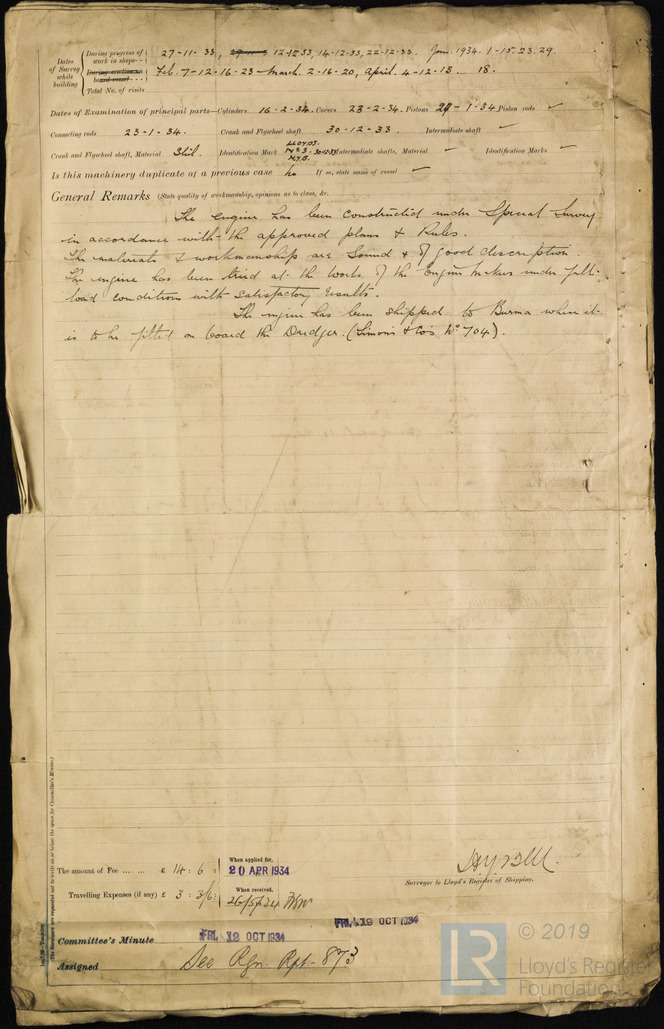 Dates of Survey while building
During progress of work in shops - - 27-11-33, 12-12-33, 14-12-33, 22-12-33. Jan. 1934. 1-15.23.29.
During erection on board vessel - - - Feb. 7-12-16-23 - March. 2-16-20, April. 4-12-18.
Total No. of visits 18.
Dates of Examination of principal parts—Cylinders 16-2-34. Covers 23-2-34. Pistons 1-34 Piston rods ✓
Connecting rods 23-1-34. Crank and Flywheel shaft 30-12-33. Intermediate shaft ✓
Crank and Flywheel shaft, Material Steel. Identification Mark LLOYDS. Nº 3 - 30-12-33 H.Y.B. Intermediate shafts, Material ✓ Identification Marks ✓
Is this machinery duplicate of a previous case no If so, state name of vessel ✓
General Remarks (State quality of workmanship, opinions as to class, &c.
The engine has been constructed under Special Survey
in accordance with the approved plans & Rules.
The materials & workmanship are sound & of good description.
The engine has been tried at the Works of the Engine Makers under full-
load conditions with satisfactory results.
The engine has been shipped to Burma where it
is to be fitted on board the Dredger. (Simons & Co's Nº 704).
The amount of Fee ... ... £ 14 : 6 : When applied for, 20 APR 1934
Travelling Expenses (if any) £ 3 : 3/6 : When received,
Surveyor to Lloyd's Register of Shipping.
FRI. 19 OCT 1934
Committee's Minute FRI. 12 OCT 1934
Assigned See Rgn. Rpt. 873
(The Surveyors are requested not to write on or below the space for Committee's Minute.)
LR © 2019
Lloyd's Register
Foundation